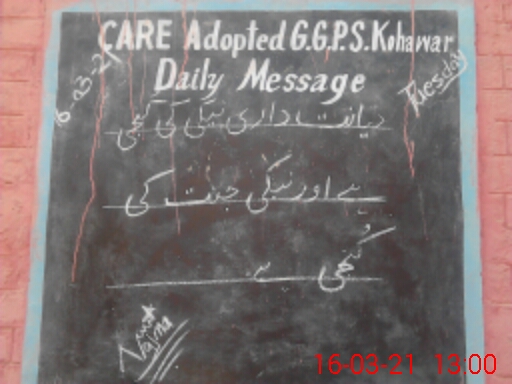 CARE Adopted G.G.P.S. Kohawar
Daily Message
16-03-21
Tuesday
دیانت داری نیکی کی کنجی
ہے اور نیکی جنت کی
کنجی ہے۔
Najma
16-03-21 13:00